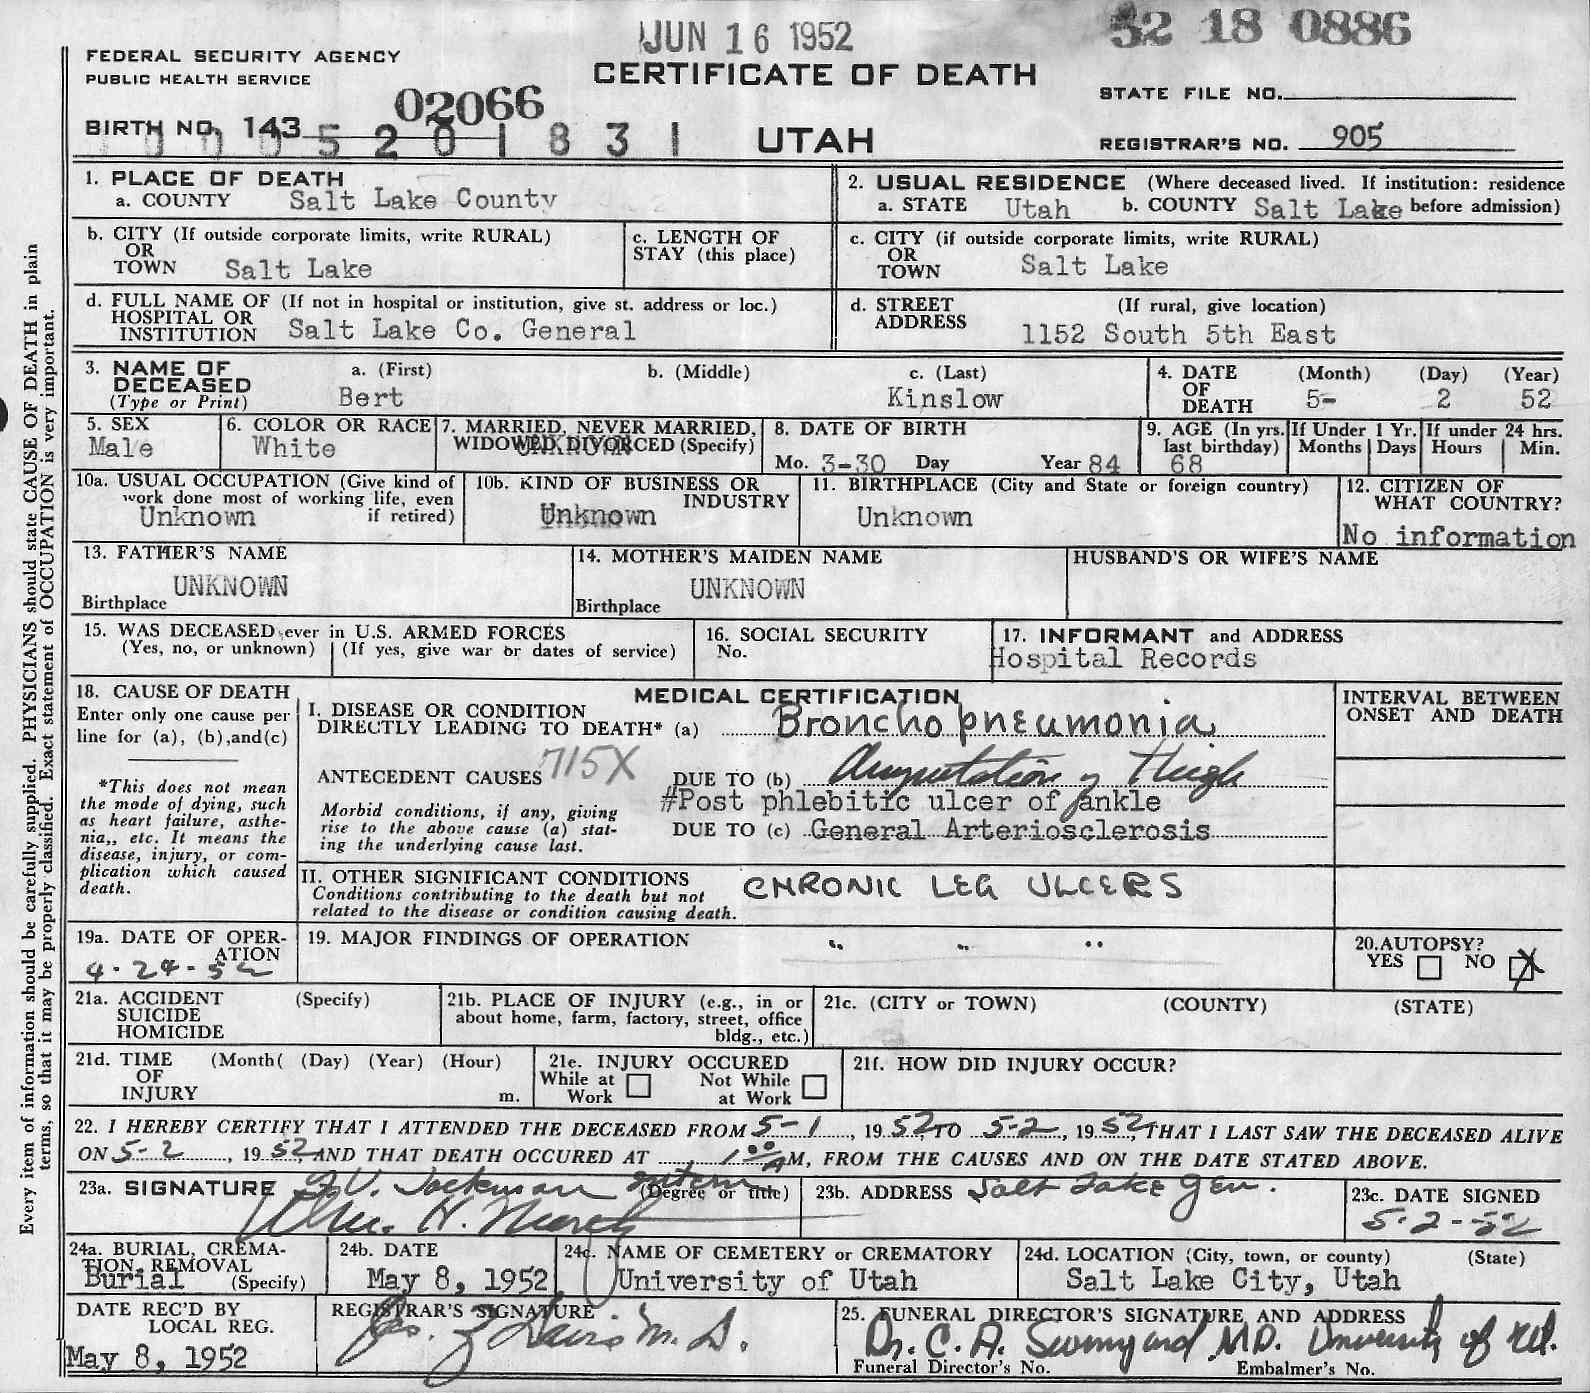 JUN 16 1952
52 18 0886
FEDERAL SECURITY AGENCY
PUBLIC HEALTH SERVICE
CERTIFICATE OF DEATH
STATE FILE NO.
02066
BIRTH NO. 143
10005201831
UTAH
REGISTRAR'S NO. 905
1. PLACE OF DEATH
a. COUNTY Salt Lake County
2. USUAL RESIDENCE (Where deceased lived. If institution: residence
a. STATE Utah b. COUNTY Salt Lake before admission)
b. CITY (If outside corporate limits, write RURAL)
OR
TOWN Salt Lake
c. LENGTH OF
STAY (this place)
c. CITY (if outside corporate limits, write RURAL)
OR
TOWN Salt Lake
d. FULL NAME OF (If not in hospital or institution, give st. address or loc.)
HOSPITAL OR
INSTITUTION Salt Lake Co. General
d. STREET (If rural, give location)
ADDRESS 1152 South 5th East
3. NAME OF a. (First) b. (Middle) c. (Last)
DECEASED
(Type or Print) Bert Kinslow
4. DATE (Month) (Day) (Year)
OF
DEATH 5- 2 52
5. SEX
Male
6. COLOR OR RACE
White
7. MARRIED, NEVER MARRIED,
WIDOWED, DIVORCED (Specify)
UNKNOWN
8. DATE OF BIRTH
Mo. 3-30 Day Year 84
9. AGE (In yrs. last birthday) 68
If Under 1 Yr. Months Days
If under 24 hrs. Hours Min.
10a. USUAL OCCUPATION (Give kind of
work done most of working life, even
if retired)
Unknown
10b. KIND OF BUSINESS OR
INDUSTRY
Unknown
11. BIRTHPLACE (City and State or foreign country)
Unknown
12. CITIZEN OF
WHAT COUNTRY?
No information
13. FATHER'S NAME
UNKNOWN
Birthplace
14. MOTHER'S MAIDEN NAME
UNKNOWN
Birthplace
HUSBAND'S OR WIFE'S NAME
15. WAS DECEASED ever in U.S. ARMED FORCES
(Yes, no, or unknown) (If yes, give war or dates of service)
16. SOCIAL SECURITY
No.
17. INFORMANT and ADDRESS
Hospital Records
18. CAUSE OF DEATH
Enter only one cause per
line for (a), (b),and(c)
*This does not mean
the mode of dying, such
as heart failure, asthe-
nia,, etc. It means the
disease, injury, or com-
plication which caused
death.
MEDICAL CERTIFICATION
I. DISEASE OR CONDITION
DIRECTLY LEADING TO DEATH* (a) Bronchopneumonia
715X
ANTECEDENT CAUSES DUE TO (b) Amputation of Thigh
#Post phlebitic ulcer of ankle
Morbid conditions, if any, giving
rise to the above cause (a) stat-
ing the underlying cause last.
DUE TO (c) General Arteriosclerosis
II. OTHER SIGNIFICANT CONDITIONS
Conditions contributing to the death but not
related to the disease or condition causing death.
CHRONIC LEG ULCERS
INTERVAL BETWEEN
ONSET AND DEATH
19a. DATE OF OPER-
ATION
4-24-52
19. MAJOR FINDINGS OF OPERATION
" " "
20.AUTOPSY?
YES NO X
21a. ACCIDENT (Specify)
SUICIDE
HOMICIDE
21b. PLACE OF INJURY (e.g., in or
about home, farm, factory, street, office
bldg., etc.)
21c. (CITY or TOWN) (COUNTY) (STATE)
21d. TIME (Month( (Day) (Year) (Hour)
OF
INJURY m.
21e. INJURY OCCURED
While at Work Not While at Work
21f. HOW DID INJURY OCCUR?
22. I HEREBY CERTIFY THAT I ATTENDED THE DECEASED FROM 5-1, 1952, TO 5-2, 1952, THAT I LAST SAW THE DECEASED ALIVE
ON 5-2, 1952, AND THAT DEATH OCCURED AT 1:00 AM, FROM THE CAUSES AND ON THE DATE STATED ABOVE.
23a. SIGNATURE Intern (Degree or title)
Wm. H.
23b. ADDRESS Salt Lake Gen.
23c. DATE SIGNED
5-2-52
24a. BURIAL, CREMA-
TION, REMOVAL
Burial (Specify)
24b. DATE
May 8, 1952
24c. NAME OF CEMETERY or CREMATORY
University of Utah
24d. LOCATION (City, town, or county) (State)
Salt Lake City, Utah
DATE REC'D BY
LOCAL REG.
May 8, 1952
REGISTRAR'S SIGNATURE
Davis M.D.
25. FUNERAL DIRECTOR'S SIGNATURE, AND ADDRESS
Dr. C. A. Swinyard M.D. University of Ut.
Funeral Director's No. Embalmer's No.
Every item of information should be carefully supplied. PHYSICIANS should state CAUSE OF DEATH in plain
terms, so that it may be properly classified. Exact statement of OCCUPATION is very important.